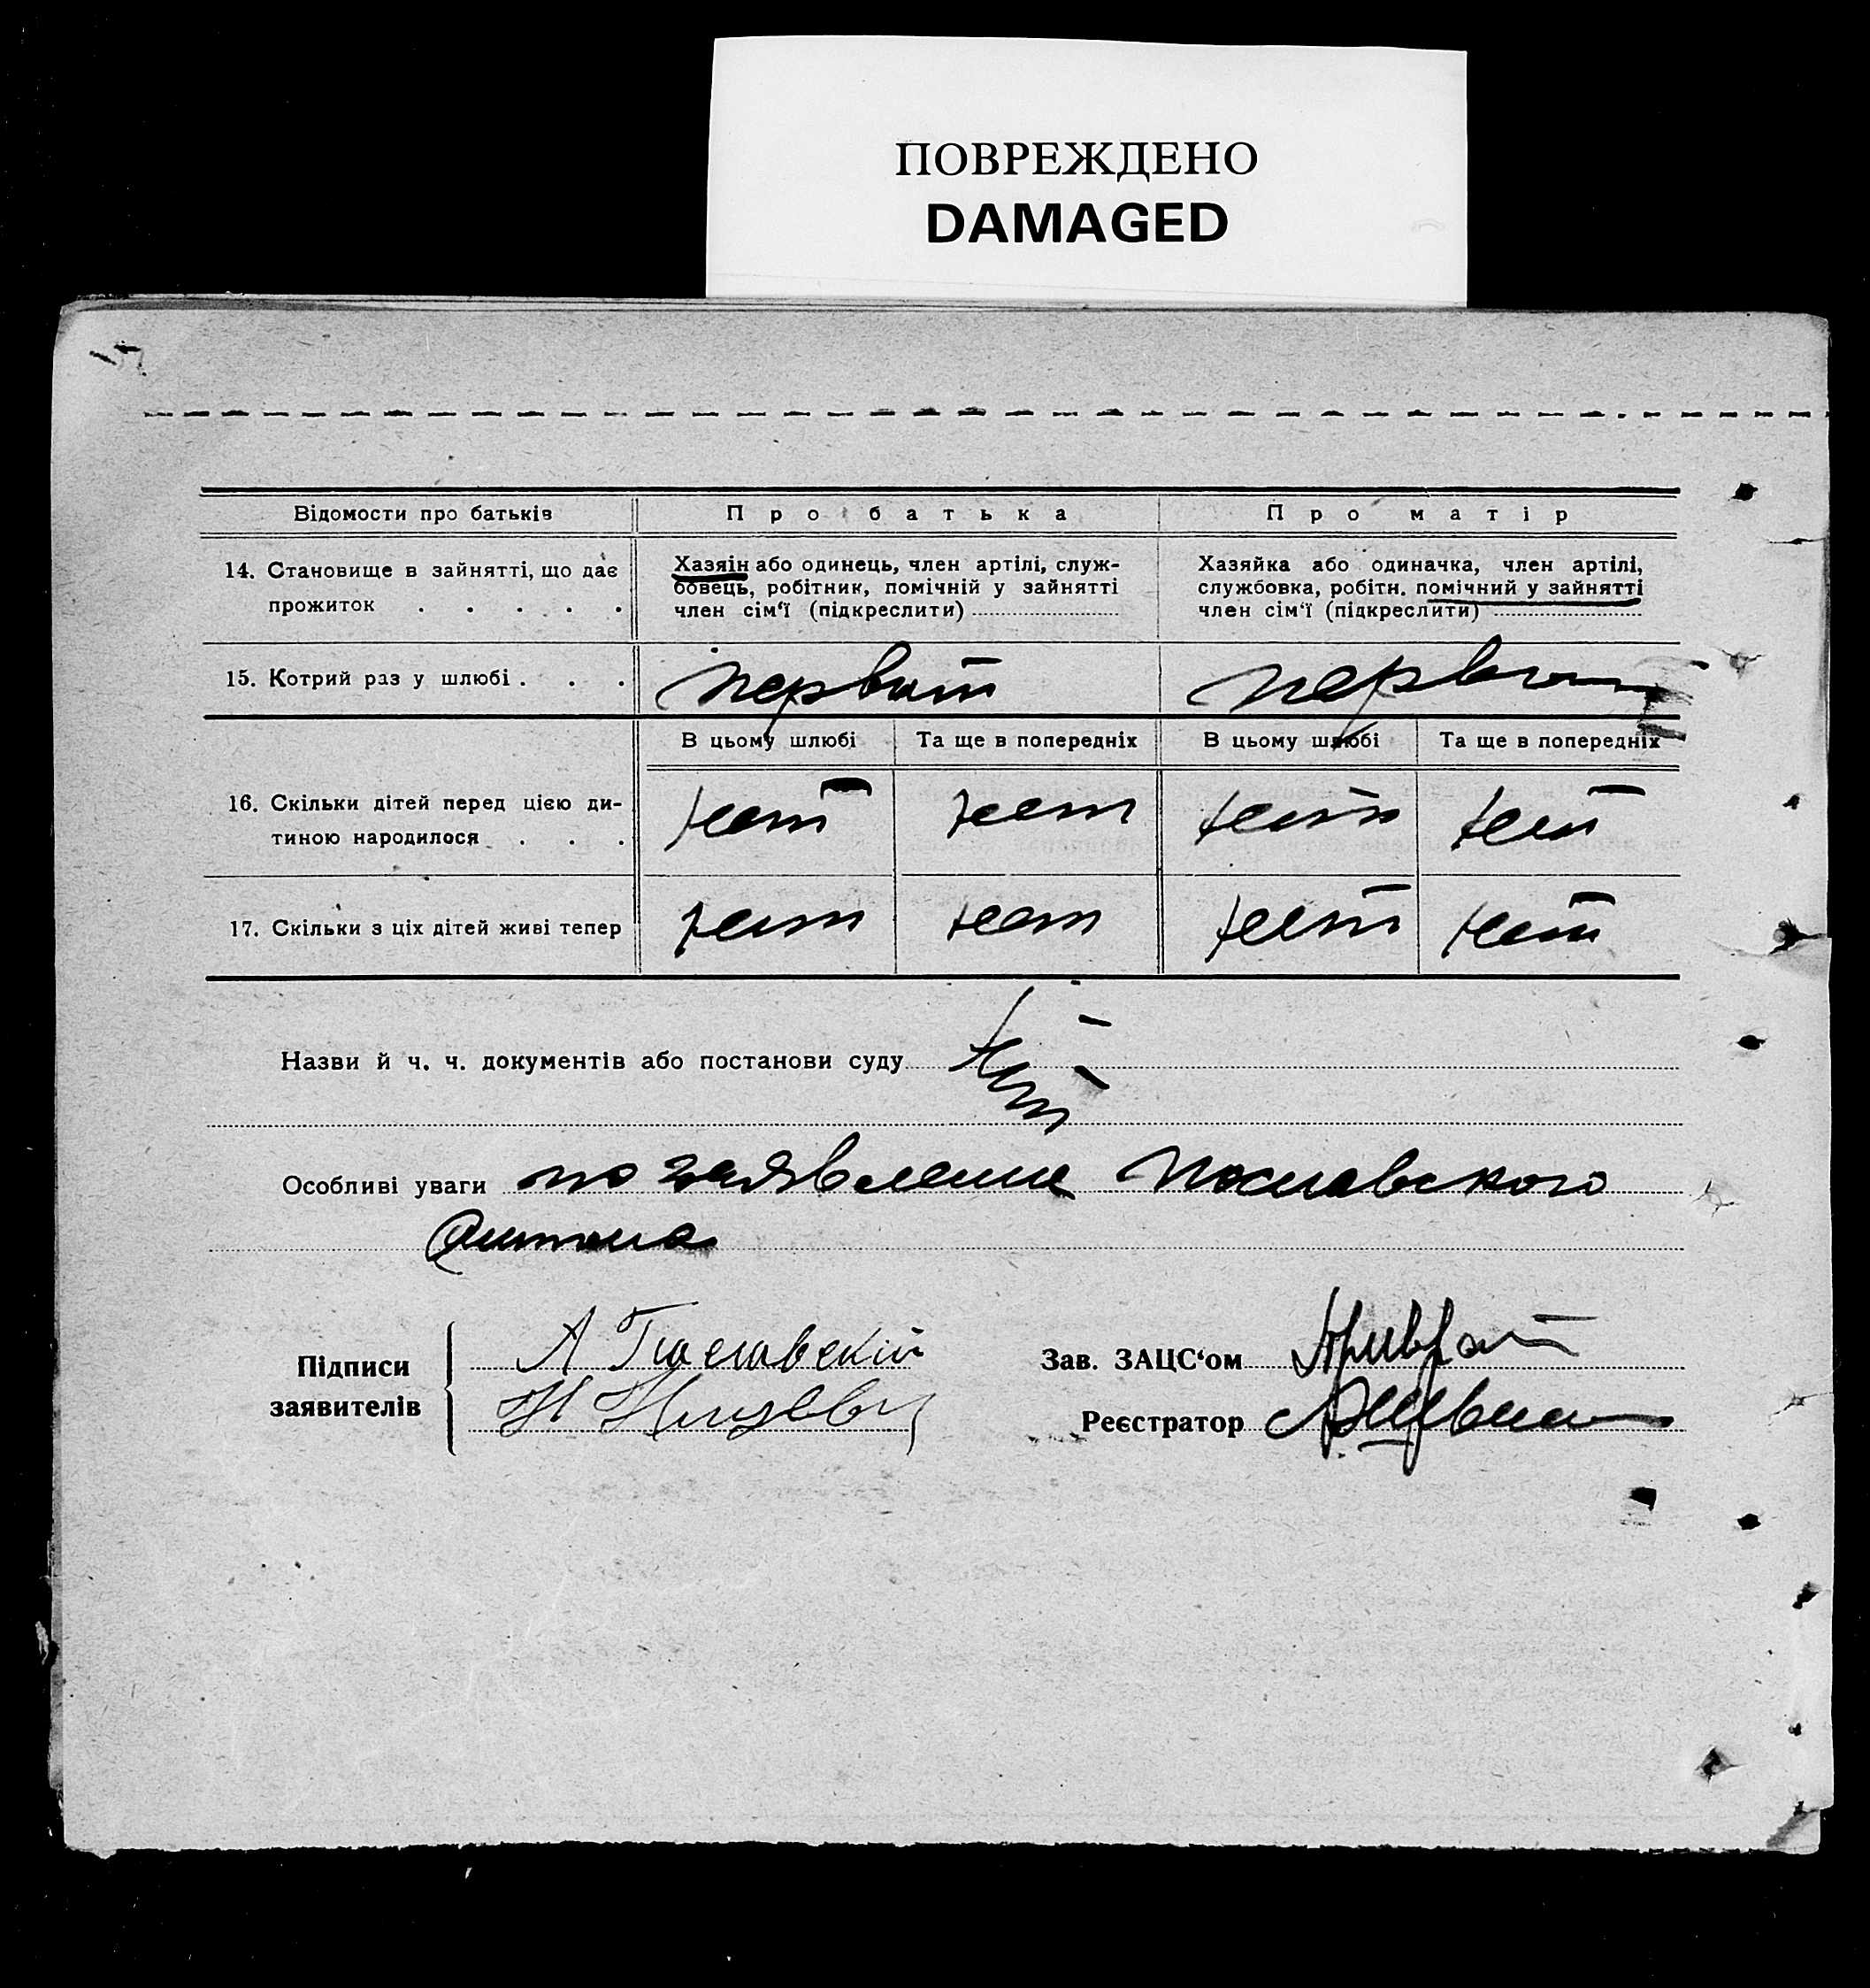 ПОВРЕЖДЕНО
DAMAGED
Відомости про батьків
Про батька
Про матір
14. Становище в зайнятті, що дає
прожиток . . . . .
Хазяін або одинець, член артілі, служ-
бовець, робітник, помічній у зайнятті
член сім'ї (підкреслити)
Хазяйка або одиначка, член артілі,
службовка, робітн. помічний у зайнятті
член сім'ї (підкреслити)
15. Котрий раз у шлюбі . . .
первый
первый
В цьому шлюбі
Та ще в попередніх
В цьому шлюбі
Та ще в попередніх
16. Скільки дітей перед цією ди-
тиною народилося . . .
нет
нет
нет
нет
17. Скільки з ціх дітей живі тепер
нет
нет
нет
нет
Назви й ч. ч. документів або постанови суду нет
Особливі уваги по заявление Пославского
Антона
Підписи
заявителів
А Пославский
Зав. ЗАЦС'ом
Реєстратор